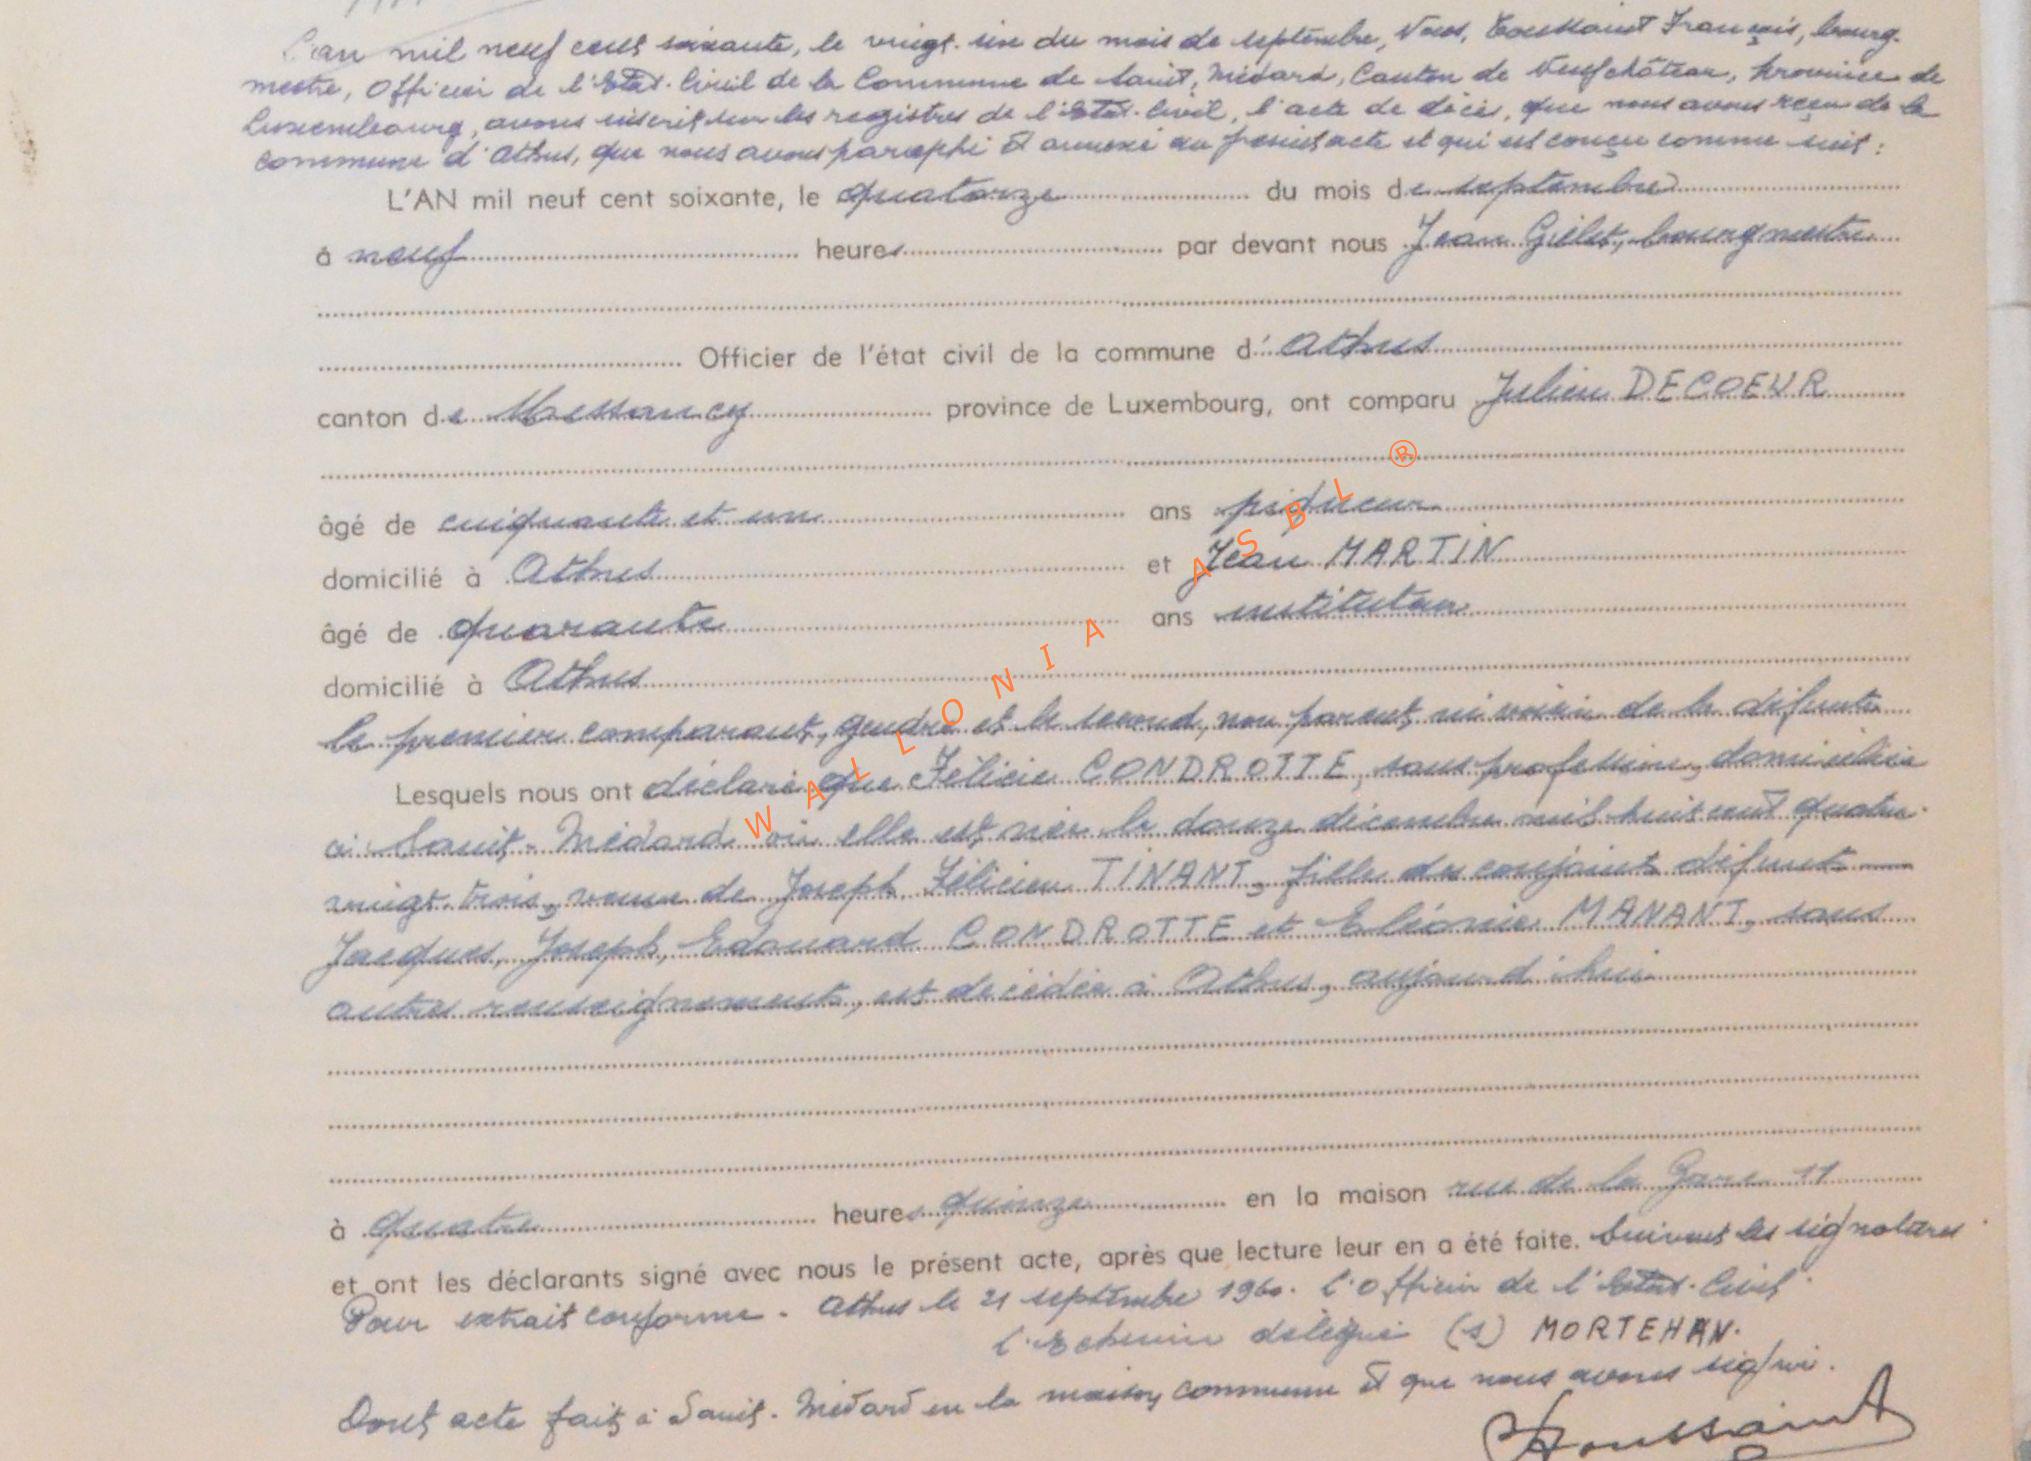 L'an mil neuf cent soixante, le vingt-un du mois de septembre, Nous, Toussaint François, bourg-
mestre, Officier de l'Etat-Civil de la Commune de Saint-Médard, Canton de Neufchâteau, Province de
Luxembourg, avons inscrit sur les registres de l'Etat-Civil, l'acte de décès, que nous avons reçu de la
commune d'Athus, que nous avons paraphé et annexé au présent acte et qui est conçu comme suit :
L'AN mil neuf cent soixante, le quatorze du mois de septembre
à neuf heures par devant nous Jean Gillet, bourgmestre
Officier de l'état civil de la commune d' Athus
canton de Messancy province de Luxembourg, ont comparu Julien DECOEUR
®
âgé de cinquante et un ans
domicilié à Athus et Jean MARTIN
âgé de quarante ans instituteur
domicilié à Athus
WALLONIA ASBL
le premier comparant, gendre et le second, non parent ni voisin de la défunte
Lesquels nous ont déclaré que Félicie CONDROTTE, sans profession, domiciliée
à Saint-Médard où elle est née le douze décembre mil huit cent quatre-
vingt-trois, veuve de Joseph Félicien TINANT, fille des conjoints défunts
Jacques, Joseph, Edouard CONDROTTE et Eléonie MANANT, sans
autres renseignements, est décédée à Athus, aujourd'hui
à quatre heures quinze en la maison rue de la Gare 11
et ont les déclarants signé avec nous le présent acte, après que lecture leur en a été faite. Suivent les signatures
Pour extrait conforme. Athus le 21 septembre 1960. L'Officier de l'Etat-Civil.
L'Echevin délégué (s) MORTEHAN.
Dont acte fait à Saint-Médard en la maison commune et que nous avons signé.
Toussaint